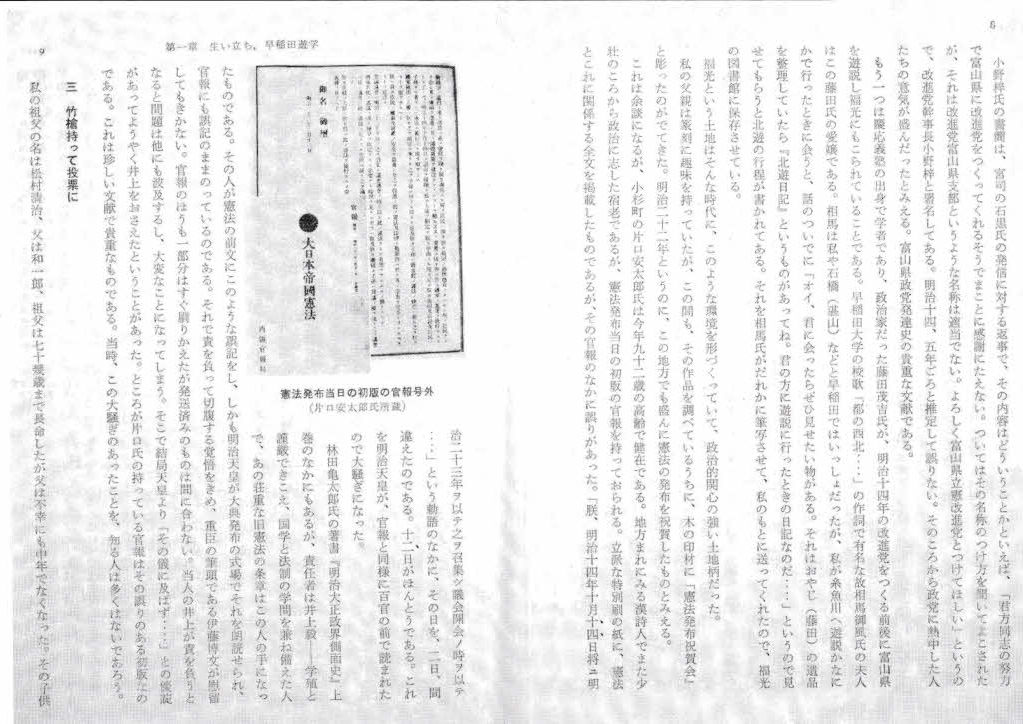 8
小野梓氏の書簡は、宮司の石黒氏の発信に対する返事で、その内容はどういうことかといえば、「君方同志の努力
で富山県に改進党をつくってくれるそうでまことに感謝にたえない。ついてはその名称のつけ方を聞いてよこされた
が、それは改進党富山県支部というような名称は適当でない。よろしく富山県立憲改進党とつけてほしい」というの
で、改進党幹事長小野梓と署名してある。明治十四、五年ごろと推定して誤りない。そのころから政党に熱中した人
たちの意気が盛んだったとみえる。富山県政党発達史の貴重な文献である。
もう一つは慶応義塾の出身で学者であり、政治家だった藤田茂吉氏が、明治十四年の改進党をつくる前後に富山県
を遊説し福光にもこられていることである。早稲田大学の校歌「都の西北・・・」の作詞で有名な故相馬御風氏の夫人
はこの藤田氏の愛嬢である。相馬は私や石橋（湛山）などと早稲田ではいっしょだったが、私が糸魚川へ遊説かなに
かで行ったときに会うと、話のついでに「オイ、君に会ったらぜひ見せたい物がある。それはおやじ（藤田）の遺品
を整理していたら『北遊日記』というものがあってね。君の方に遊説に行ったときの日記なのだ・・・」というので見
せてもらうと北遊の行程が書かれてある。それを相馬氏がだれかに筆写させて、私のもとに送ってくれたので、福光
の図書館に保存させている。
福光という土地はそんな時代に、このような環境を形づくっていて、政治的関心の強い土地柄だった。
私の父親は篆刻に趣味を持っていたが、この間も、その作品を調べているうちに、木の印材に「憲法発布祝賀会」
と彫ったのがでてきた。明治二十二年というのに、この地方でも盛んに憲法の発布を祝賀したものとみえる。
これは余談になるが、小杉町の片口安太郎氏は今年九十二歳の高齢で健在である。地方まれにみる漢詩人でまた少
壮のころから政治に志した宿老であるが、憲法発布当日の初版の官報を持っておられる。立派な特別刷の紙に、憲法
とこれに関係する全文を掲載したものであるが、その官報のなかに誤りがあった。「朕、明治十四年十月十四日将ニ明
第一章 生い立ち、早稲田遊学
9
御名 御璽
官報
大日本帝國憲法
内閣官報局
憲法発布当日の初版の官報号外
（片口安太郎氏所蔵）
治二十三年ヲ以テ之ヲ召集シ議会開会ノ時ヲ以テ
・・・」という勅語のなかに、その日を、二日、間
違えたのである。十二日がほんとうである。これ
を明治天皇が、官報と同様に百官の前で読まれた
ので大騒ぎになった。
林田亀太郎氏の著書『明治大正政界側面史』上
巻のなかにもあるが、責任者は井上毅――学殖と
謹厳できこえ、国学と法制の学問を兼ね備えた人
で、あの荘重な旧憲法の条章はこの人の手になっ
たものである。その人が憲法の前文にこのような誤記をし、しかも明治天皇が大典発布の式場でそれを朗読せられ、
官報にも誤記のままのっているのである。それで責を負って切腹する覚悟をきめ、重臣の筆頭である伊藤博文が慰留
してもきかない。官報のほうも一部分はすぐ刷りかえたが発送済みのものは間に合わない。当人の井上が責を負うと
なると問題は他にも波及するし、大変なことになってしまう。そこで結局天皇より「その儀に及ばず・・・」との優諚
があってようやく井上をおさえたということがあった。ところが片口氏の持っている官報はその誤りのある初版なの
である。これは珍しい文献で貴重なものである。当時、この大騒ぎのあったことを、知る人は多くはないであろう。
三 竹槍持って投票に
私の祖父の名は松村清治、父は和一郎、祖父は七十幾歳まで長命したが父は不幸にも中年でなくなった。その子供